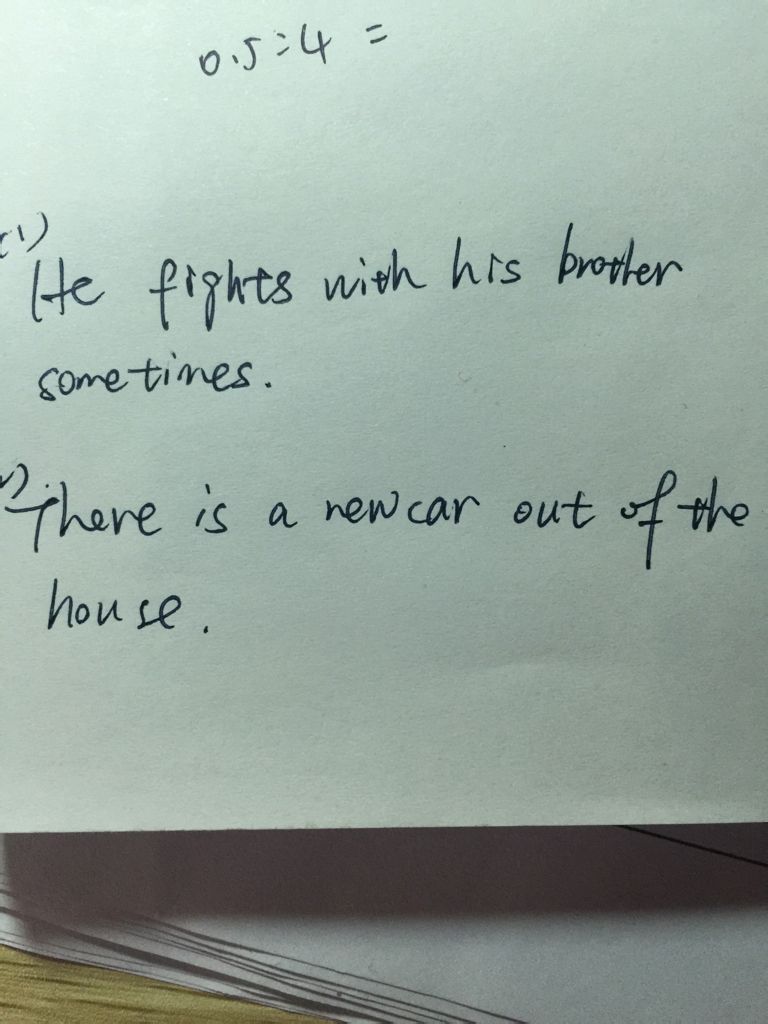 0.5÷4 =
(1)
He fights with his brother
sometimes.
There is a new car out of the
house.